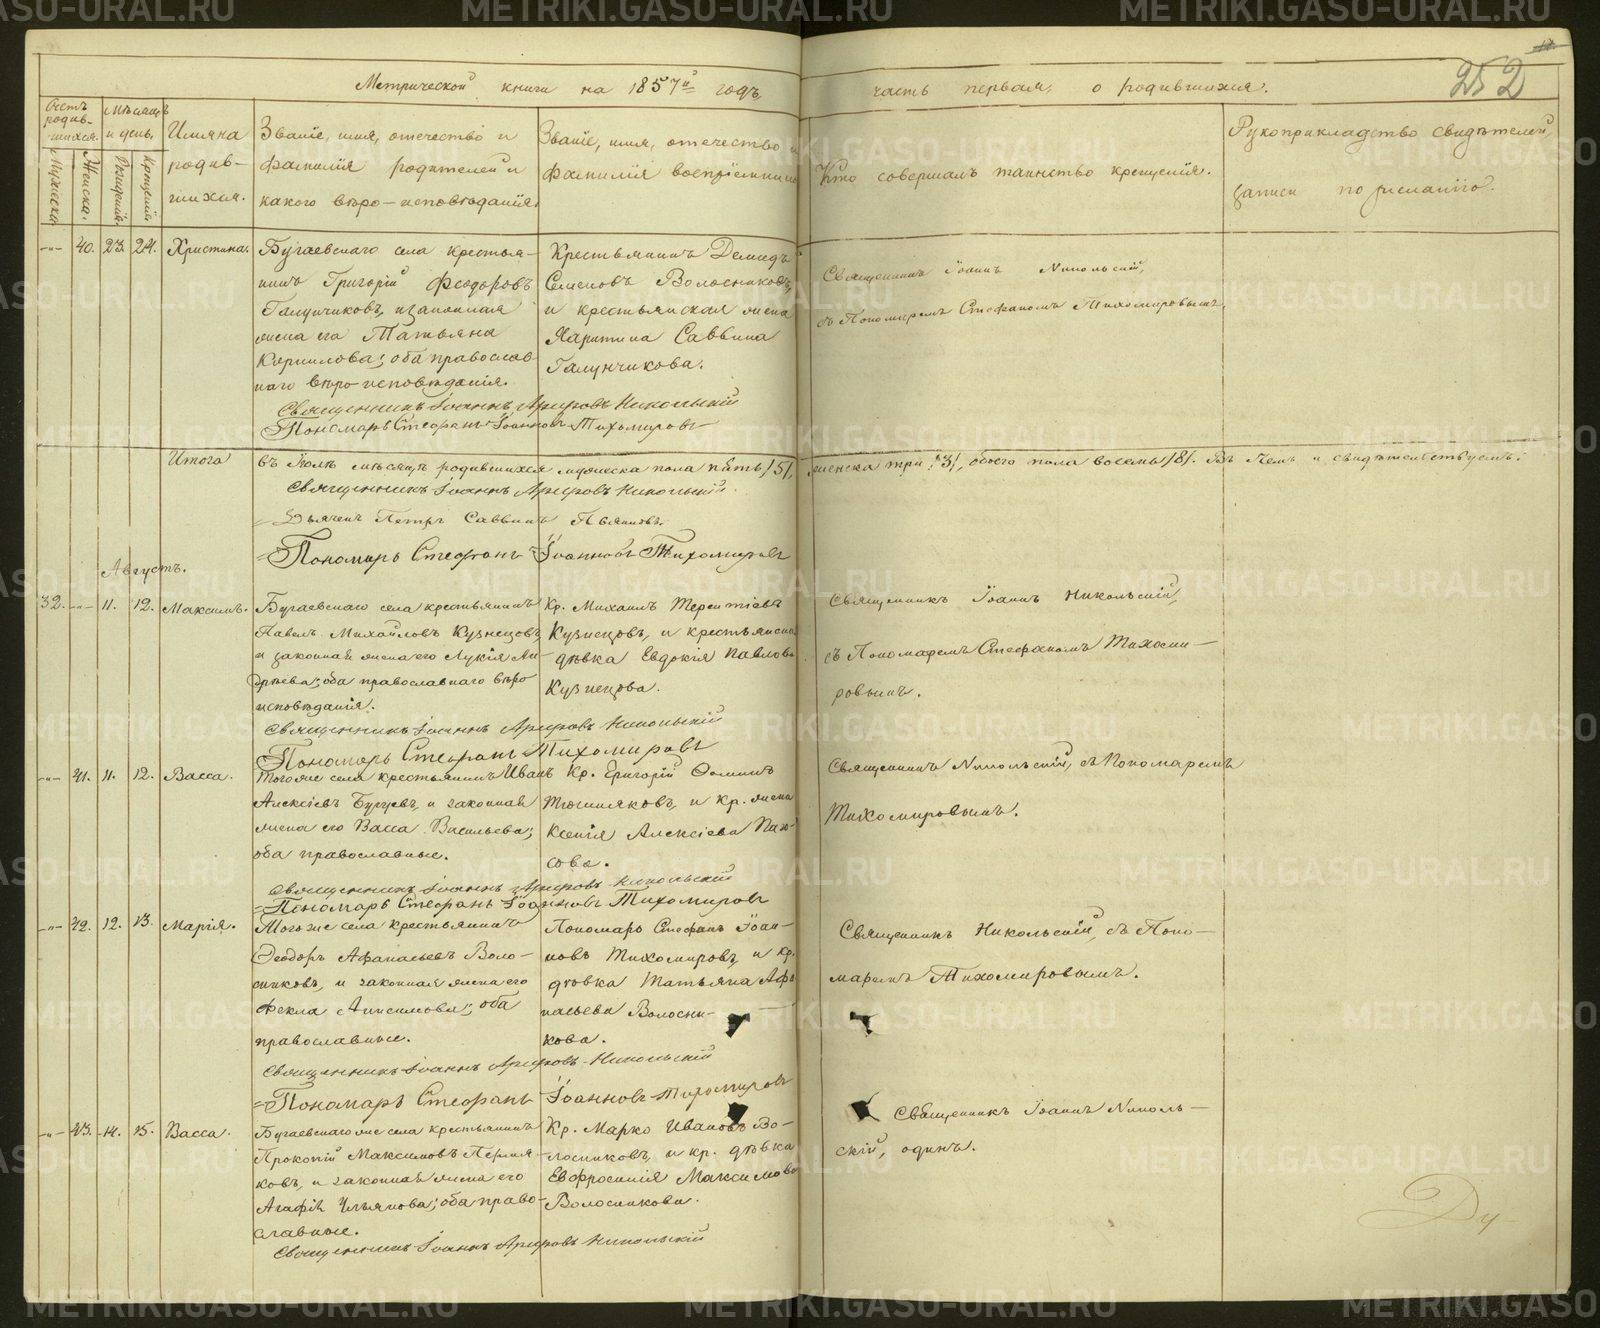 Метрической книги на 1857й годъ,
часть первая, о родившихся.
252
Счетъ родив-шихся.
Мужеска.
Женска.
Мѣсяцъ и день,
Рожденія.
Крещенія.
Имяна родив-шихся.
Званіе, имя, отечество и
фамилія родителей и
какого вѣро-исповѣданія.
Званіе, имя, отечество и
фамилія воспріемниковъ
Кто совершалъ таинство крещенія.
Рукоприкладство свидѣтелей
записи по желанію.
-"- 40. 23. 24. Христина.
Бугаевскаго села крестья-
нинъ Григорій Феодоровъ
Галунчиковъ, и законная
жена его Татьяна
Корнилова; оба православ-
наго вѣро-исповѣданія.
Крестьянинъ Демидъ
Семеновъ Волосниковъ,
и крестьянская жена
Харитина Саввина
Галунчикова.
Священникъ Іоаннъ Никольскій,
съ Пономаремъ Стефаномъ Тихомировымъ.
Священникъ Іоаннъ Никольскій
Пономарь Стефанъ Іоанновъ Тихомировъ
Итого
въ Іюлѣ мѣсяцѣ родившихся мужеска пола пять /5/,
женска три /3/, обоего пола восемь /8/. Въ чемъ и свидѣтельствуемъ:
Священникъ Іоаннъ Никольскій
Дьячекъ Петръ Саввинъ
Пономарь Стефанъ Іоанновъ Тихомировъ
Августъ.
32. -"- 11. 12. Максимъ.
Бугаевскаго села крестьянинъ
Павелъ Михайловъ Кузнецовъ,
и законная жена его Лукія Ан-
дреева; оба православнаго вѣро
исповѣданія.
Кр. Михаилъ Терентіевъ
Кузнецовъ, и крестьянска
дѣвка Евдокія Павлова
Кузнецова.
Священникъ Іоаннъ Никольскій,
съ Пономаремъ Стефаномъ Тихоми-
ровымъ.
Священникъ Іоаннъ Никольскій
Пономарь Стефанъ Тихомировъ
-"- 41. 11. 12. Васса.
Тогоже села крестьянинъ Иванъ
Алексіевъ Бугуевъ, и законная
жена его Васса Васильева;
оба православные.
Кр. Григорій Фоминъ
и кр. жена
Ксенія Алексіева
сова.
Священникъ Никольскій, съ Пономаремъ
Тихомировымъ.
Священникъ Іоаннъ Никольскій
Пономарь Стефанъ Іоанновъ Тихомировъ
-"- 42. 12. 13. Марія.
Тогоже села крестьянинъ
Феодоръ Афанасьевъ Воло-
сниковъ, и законная жена его
Фекла Анисимова; оба
православные.
Пономарь Стефанъ Іоан-
новъ Тихомировъ, и кр.
дѣвка Татьяна Афа
насьева Волосни-
кова.
Священникъ Никольскій, съ Поно-
маремъ Тихомировымъ.
Священникъ Іоаннъ Никольскій
Пономарь Стефанъ Іоанновъ Тихомировъ
-"- 43. 14. 15. Васса.
Бугаевскаго же села крестьянинъ
Прокопій Максимовъ Пермя-
ковъ, и законная жена его
Агафія Ульянова; оба право-
славные.
Кр. Марко Ивановъ Во-
лосниковъ, и кр. дѣвка
Евфросинія Максимова
Волосникова.
Священникъ Іоаннъ Николь-
скій, одинъ.
Священникъ Іоаннъ Никольскій
Ду-
METRIKI.GASO-URAL.RU